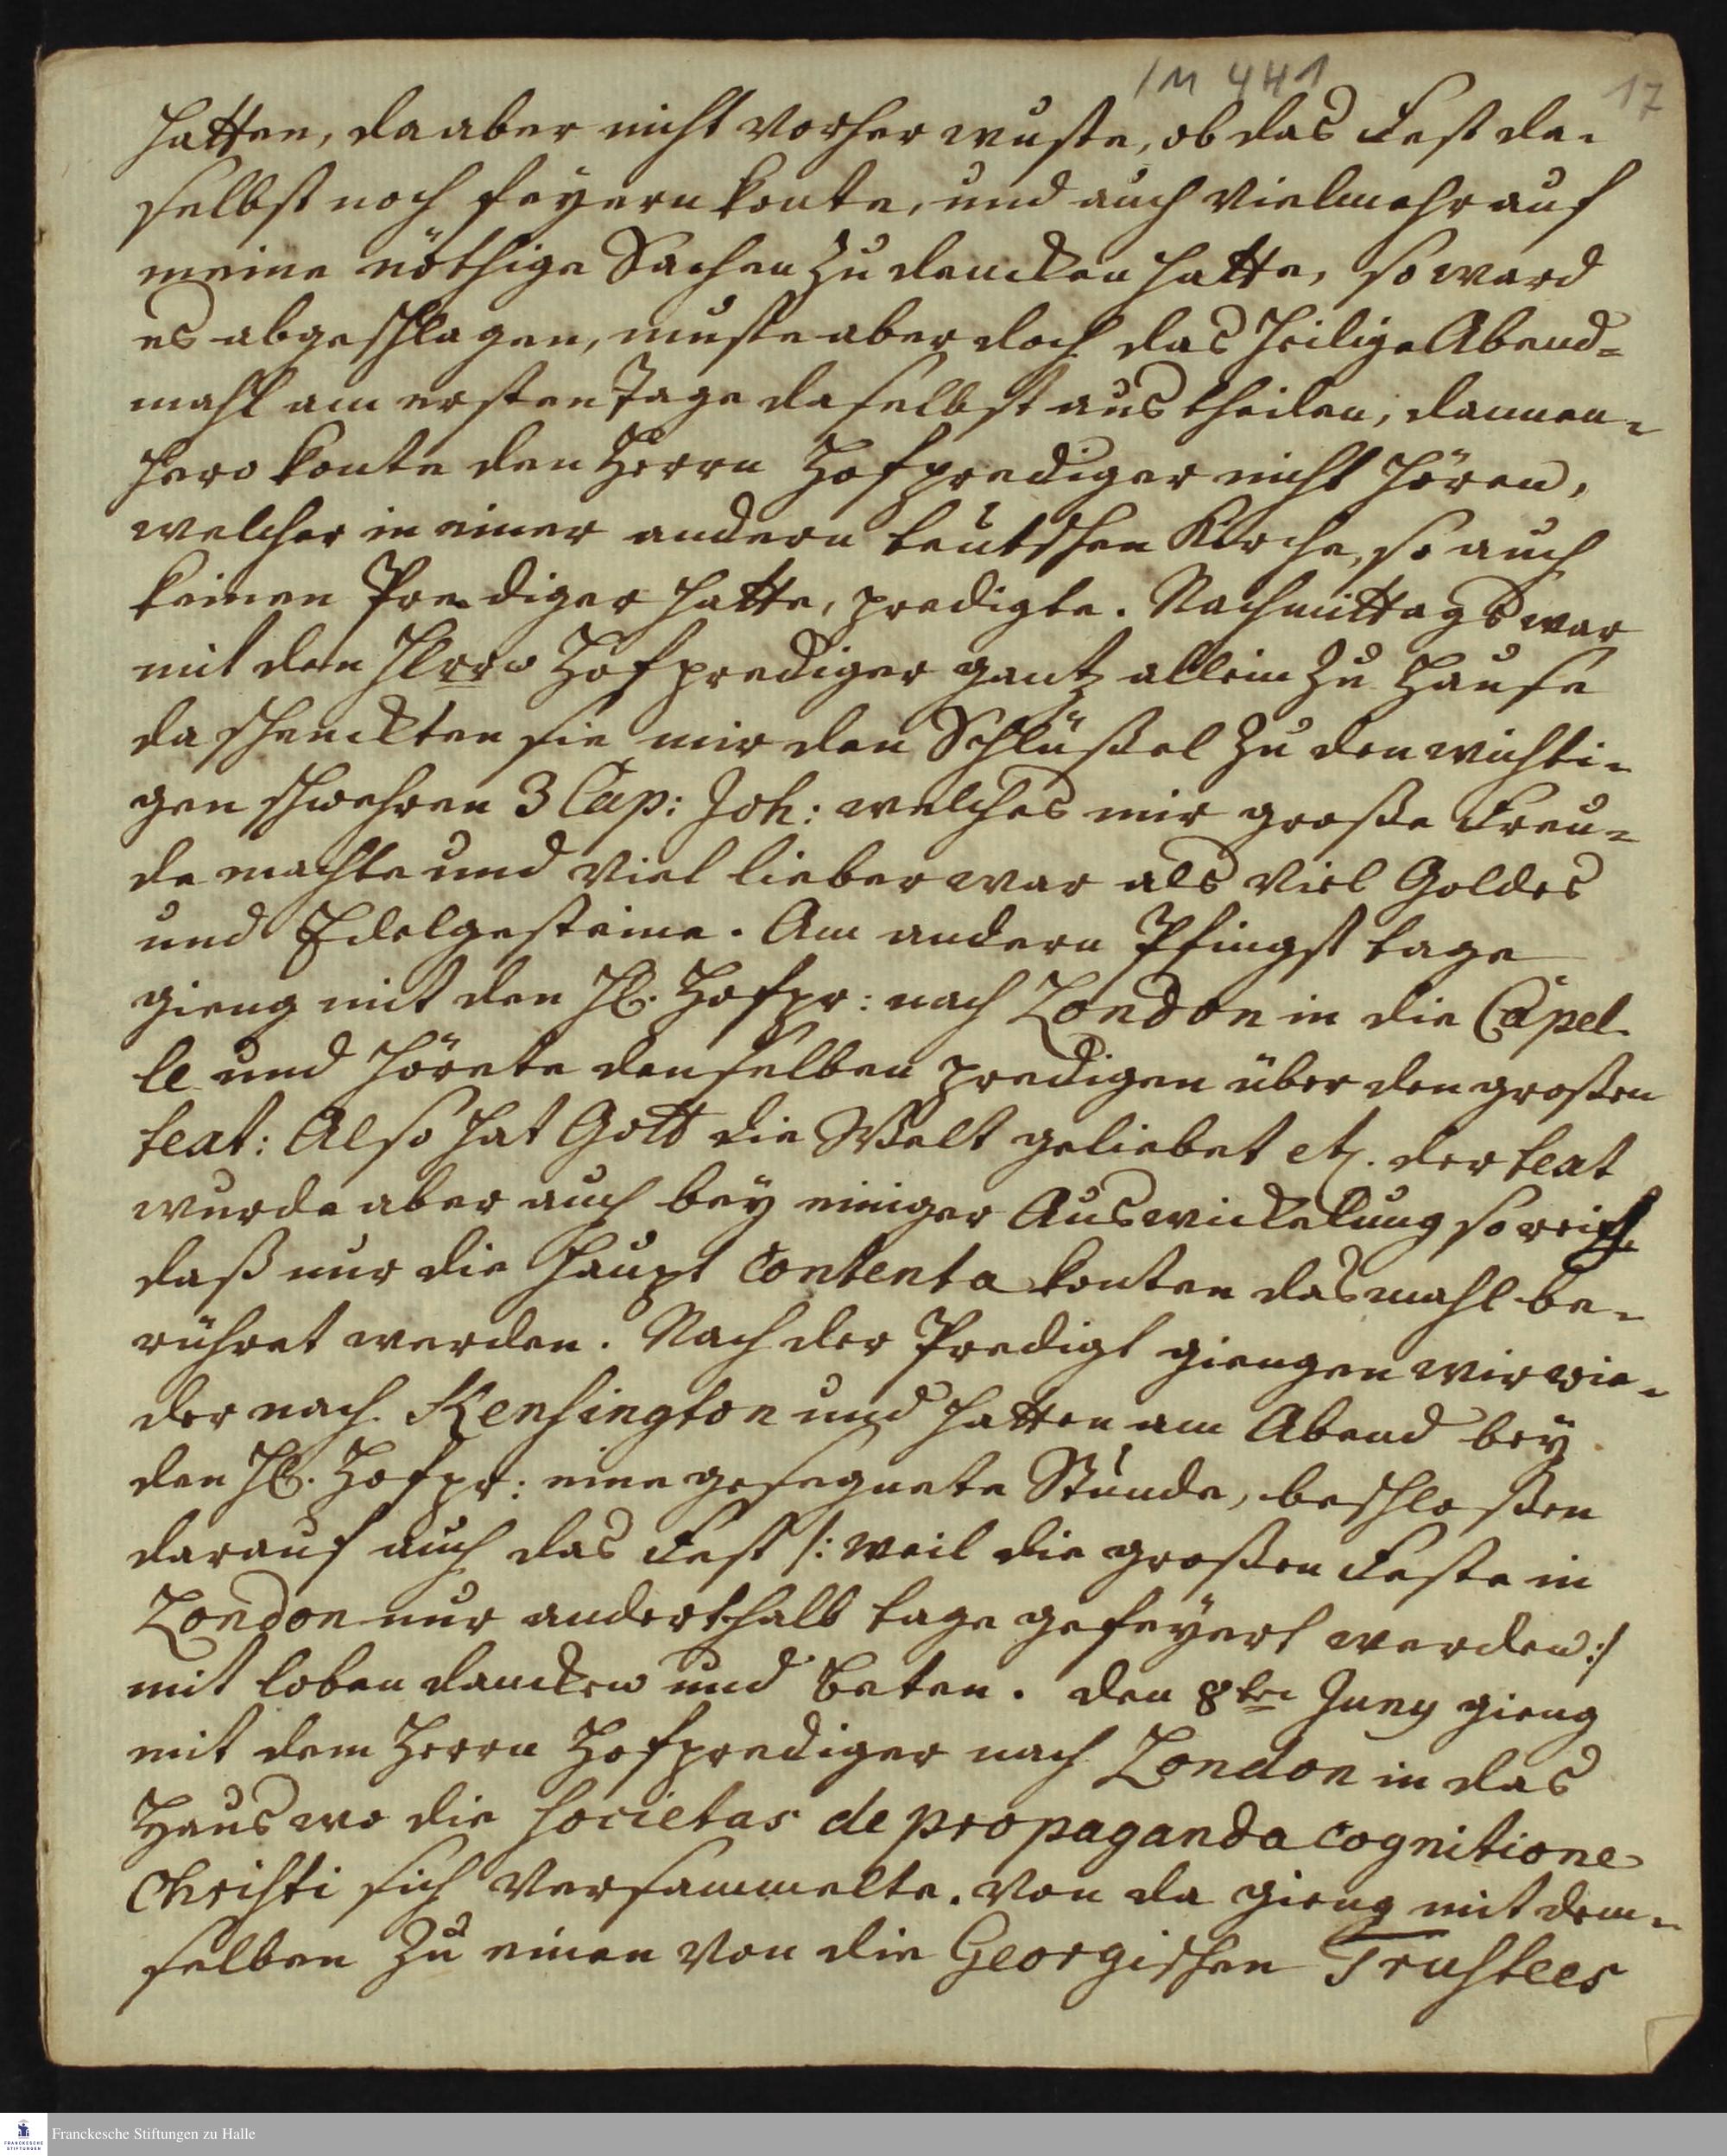 1M 4H1
17
hatten, da aber nicht vorher wuste, ob das Fest da-
selbst noch feyern konte, und auch vielmehr auf
meine nöthige Sachen zu dencken hatte, so ward
es abgeschlagen, muste aber doch das heilige Abend=
mahl am ersten Tage daselbst austheilen, dannen-
hero konte den Herrn Hofprediger nicht hören,
welcher in einer andern teutschen Kirche, so auch
keinen Prediger hatte, predigte. Nachmittags war
mit den Hofprediger gantz allein zu Hause
da schenckten sie mir den Schlüßel zu den wichti-
gen schwehren 3 Cap: Joh: welches mir große Freu-
de machte und viel lieber war als viel Goldes
und Edelgesteine. Am andern Pfingst tage
gieng mit den H. Hofpr: nach London in die Capel-
le und hörete denselben predigen über den großen
text: Also hat Gott die Welt geliebet etc. der text
wurde aber auch bey einiger Auswickelung so reich
daß nur die Haupt Contenta konten dasmahl be-
rühret werden. Nach der Predigt giengen wir wie-
der nach Kensington und hatten am Abend bey
den H. Hofpr: eine gesegnete Stunde, beschloßen
darauf auch das Fest /: weil die großen Feste in
London nur anderthalb tage gefeyert werden :/
mit loben dancken und beten. den 8ten Juny gieng
mit dem Herrn Hofprediger nach London in das
Haus wo die societas de propaganda cognitione
Christi sich versammelte. Von da gieng mit dem-
selben zu einen von die Georgischen Trustees
Franckesche Stiftungen zu Halle